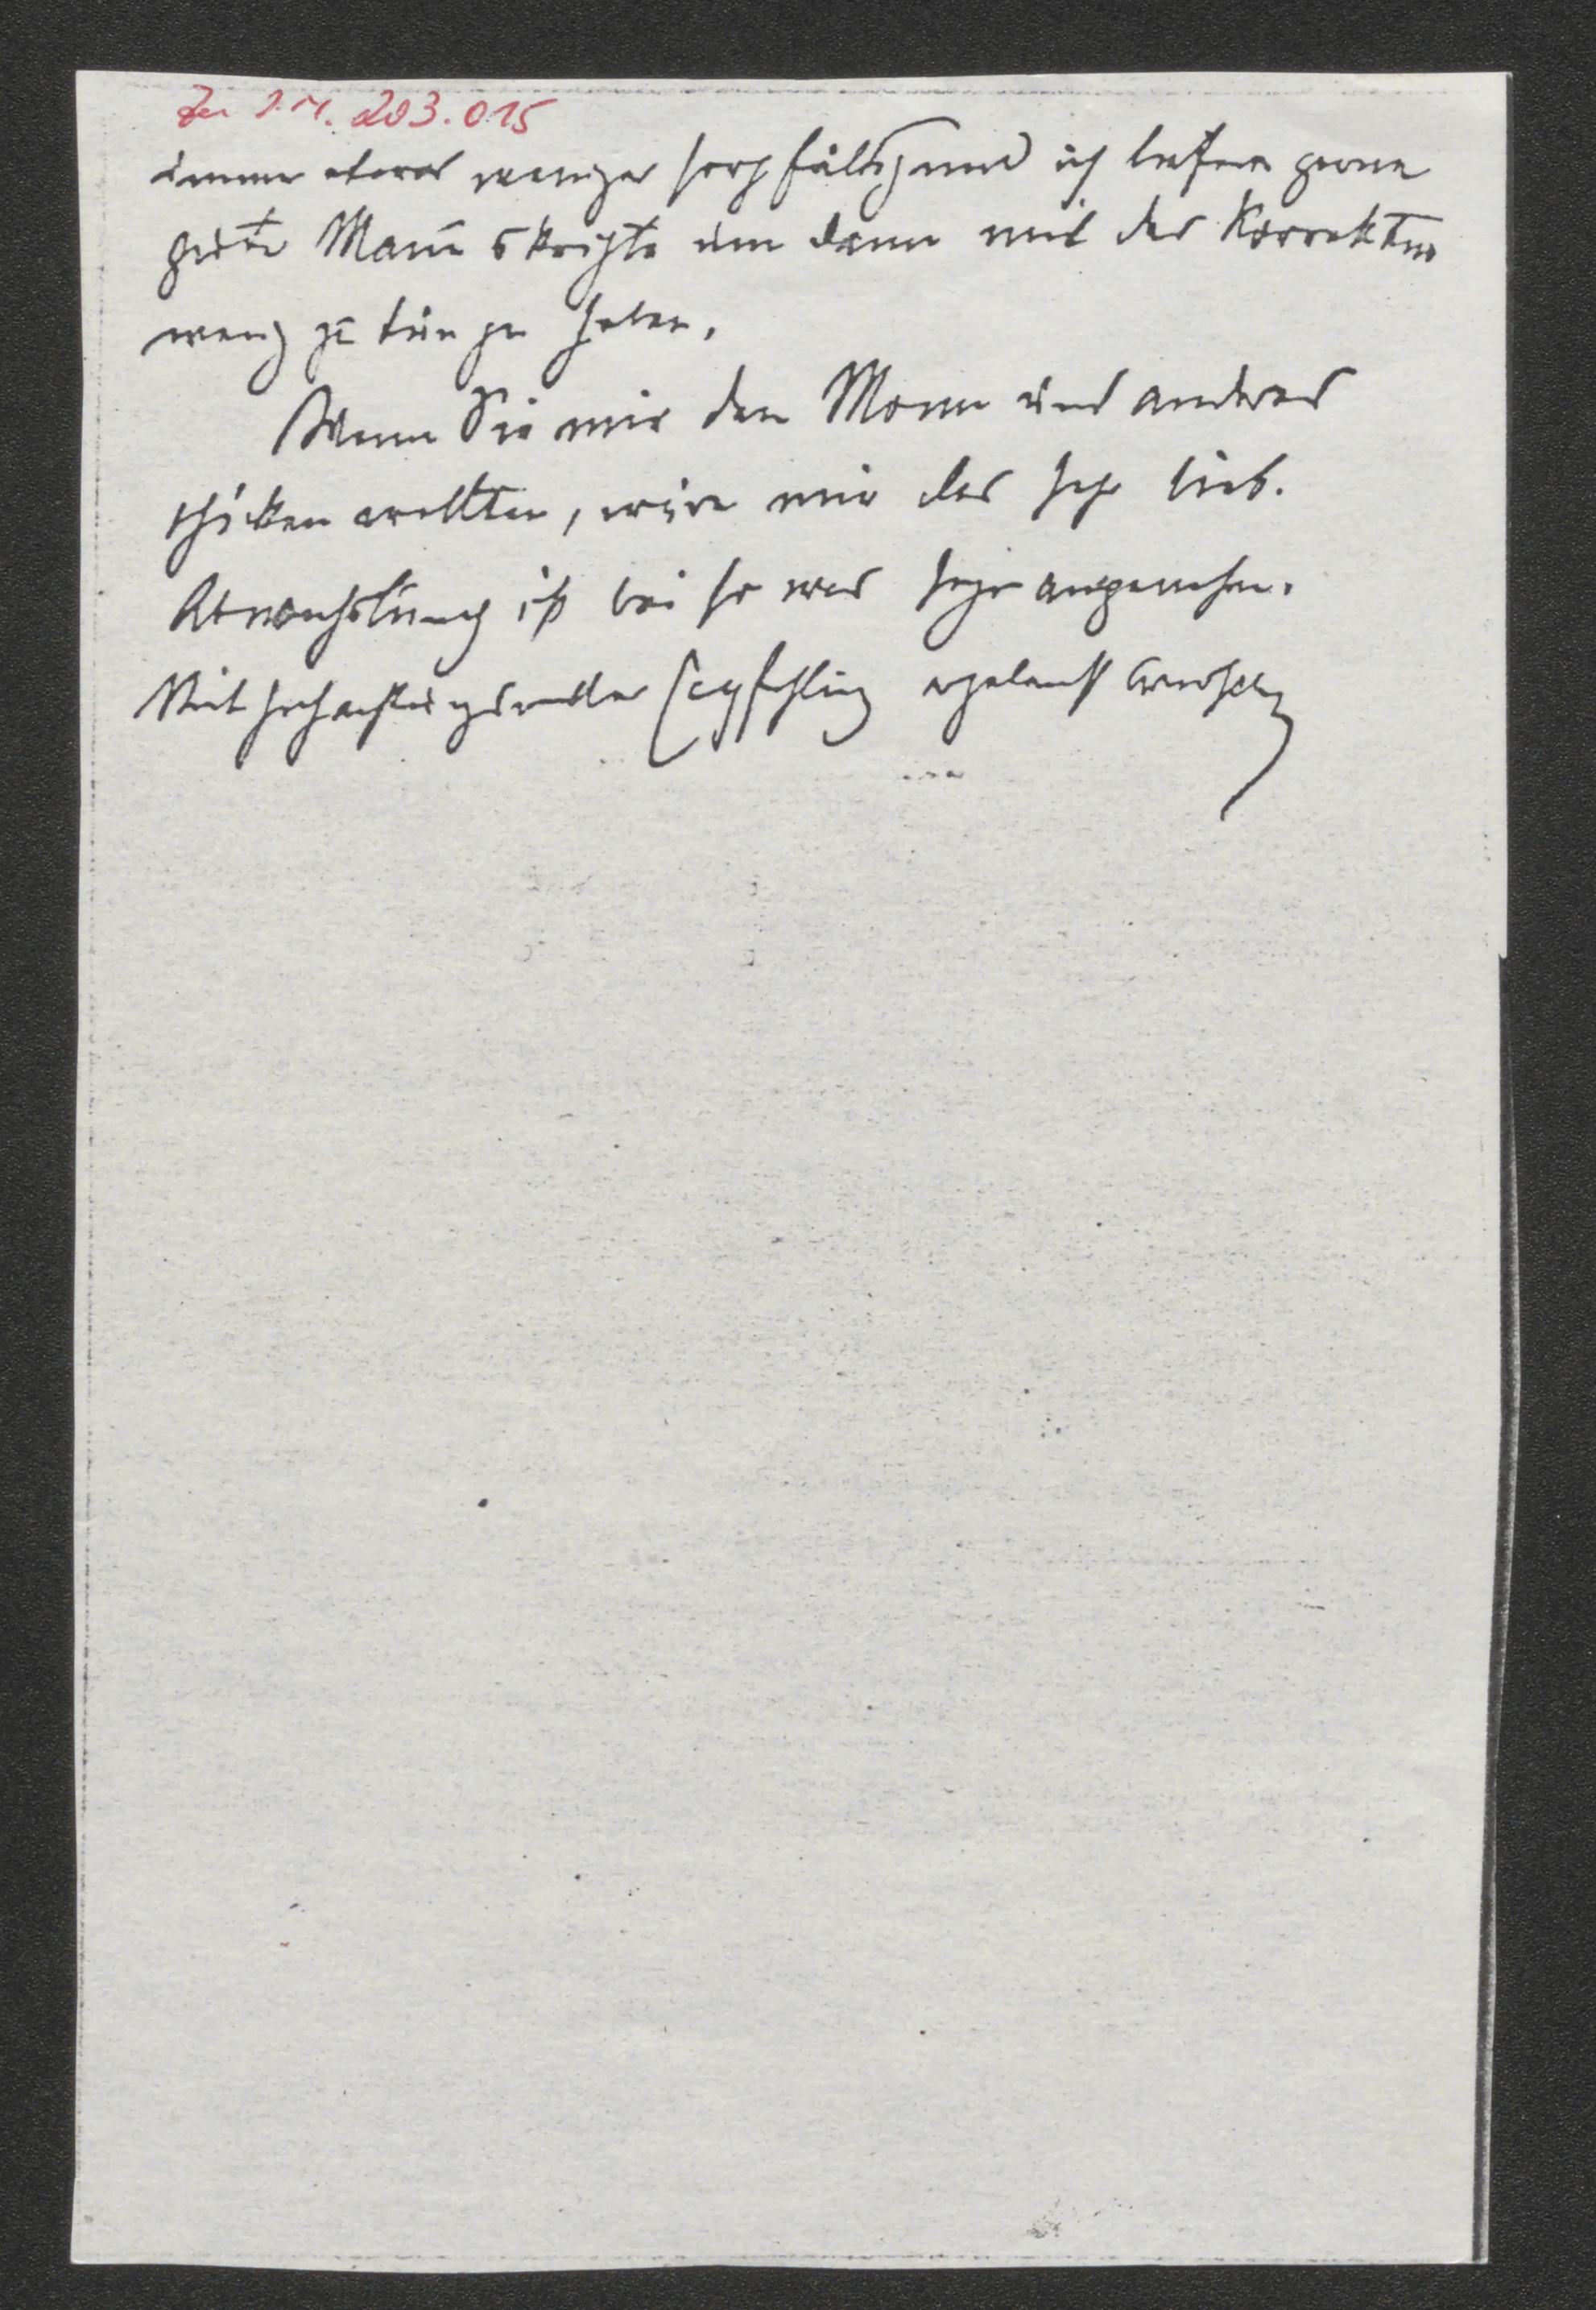 Zu I.N. 203.015
immer etwas weniger sorgfältig und ich liefere gerne
gute Manuskripte um dann mit der Korrektur
wenig zu tun zu haben.
Wenn Sie mir den Mann und anderes
schicken wollten, wäre mir das sehr lieb.
Abwechslung ist bei so was sehr angenehm.
Mit hochachtungsvoller Empfehlung ergebenst